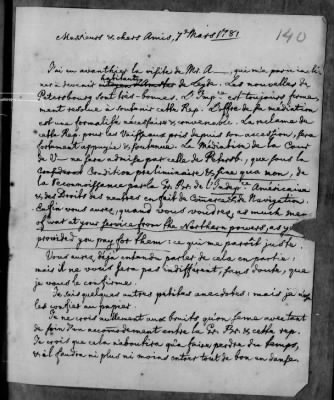 140
Messieurs & chers Amis, 7e Mars 1781
J'ai eu avanthier la visite de Mr. A—, qui m'a paru incliner
à devenir habitant de Leyde. Les nouvelles de
Petersbourg sont très-bonnes. L'Imp.ce est toujours ferme
ment resolue à soutenir cette Rep. L'offre de sa médiation
est une formalité nécessaire & convenable. La reclame de
cette Rep. pour les Vaisseaux pris depuis son accession, sera
fortement appuyée & soutenue. La Médiation de la Cour
de V— ne sera admise par celle de Petersb., que sous la
Condition preliminaire & sine qua non, de
la reconnoissance par la Gr. Br. de l'Indep.ce Américaine
& des Droits des neutres en fait de Comerce & de Navigation.
Enfin vous aurez, quand vous voudrez, as much men
of war at your service from the Northern powers, as you
provided you pay for them: ce qui me paroît juste.
Vous aurez déja entendu parler de cela en partie:
mais il ne vous sera pas indifférent, sans doute, que
je vous le confirme.
Je sais quelques autres petites anecdotes: mais je n'ose
les confier au papier.
Je ne crois nullement aux bruits qu'on seme avec tant
de soin d'un accommodement entre la Gr. Br. & cette rep.
Je crois que cela n'aboutira qu'à faire perdre du temps,
& il faudra ni plus ni moins entrer tout de bon en danse.